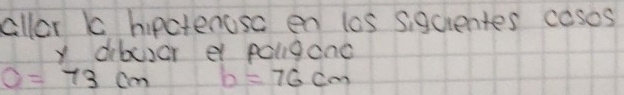 allar la hipotenusa en los siguientes casos
y dibujar el poligono
a = 73 cm b = 76 cm